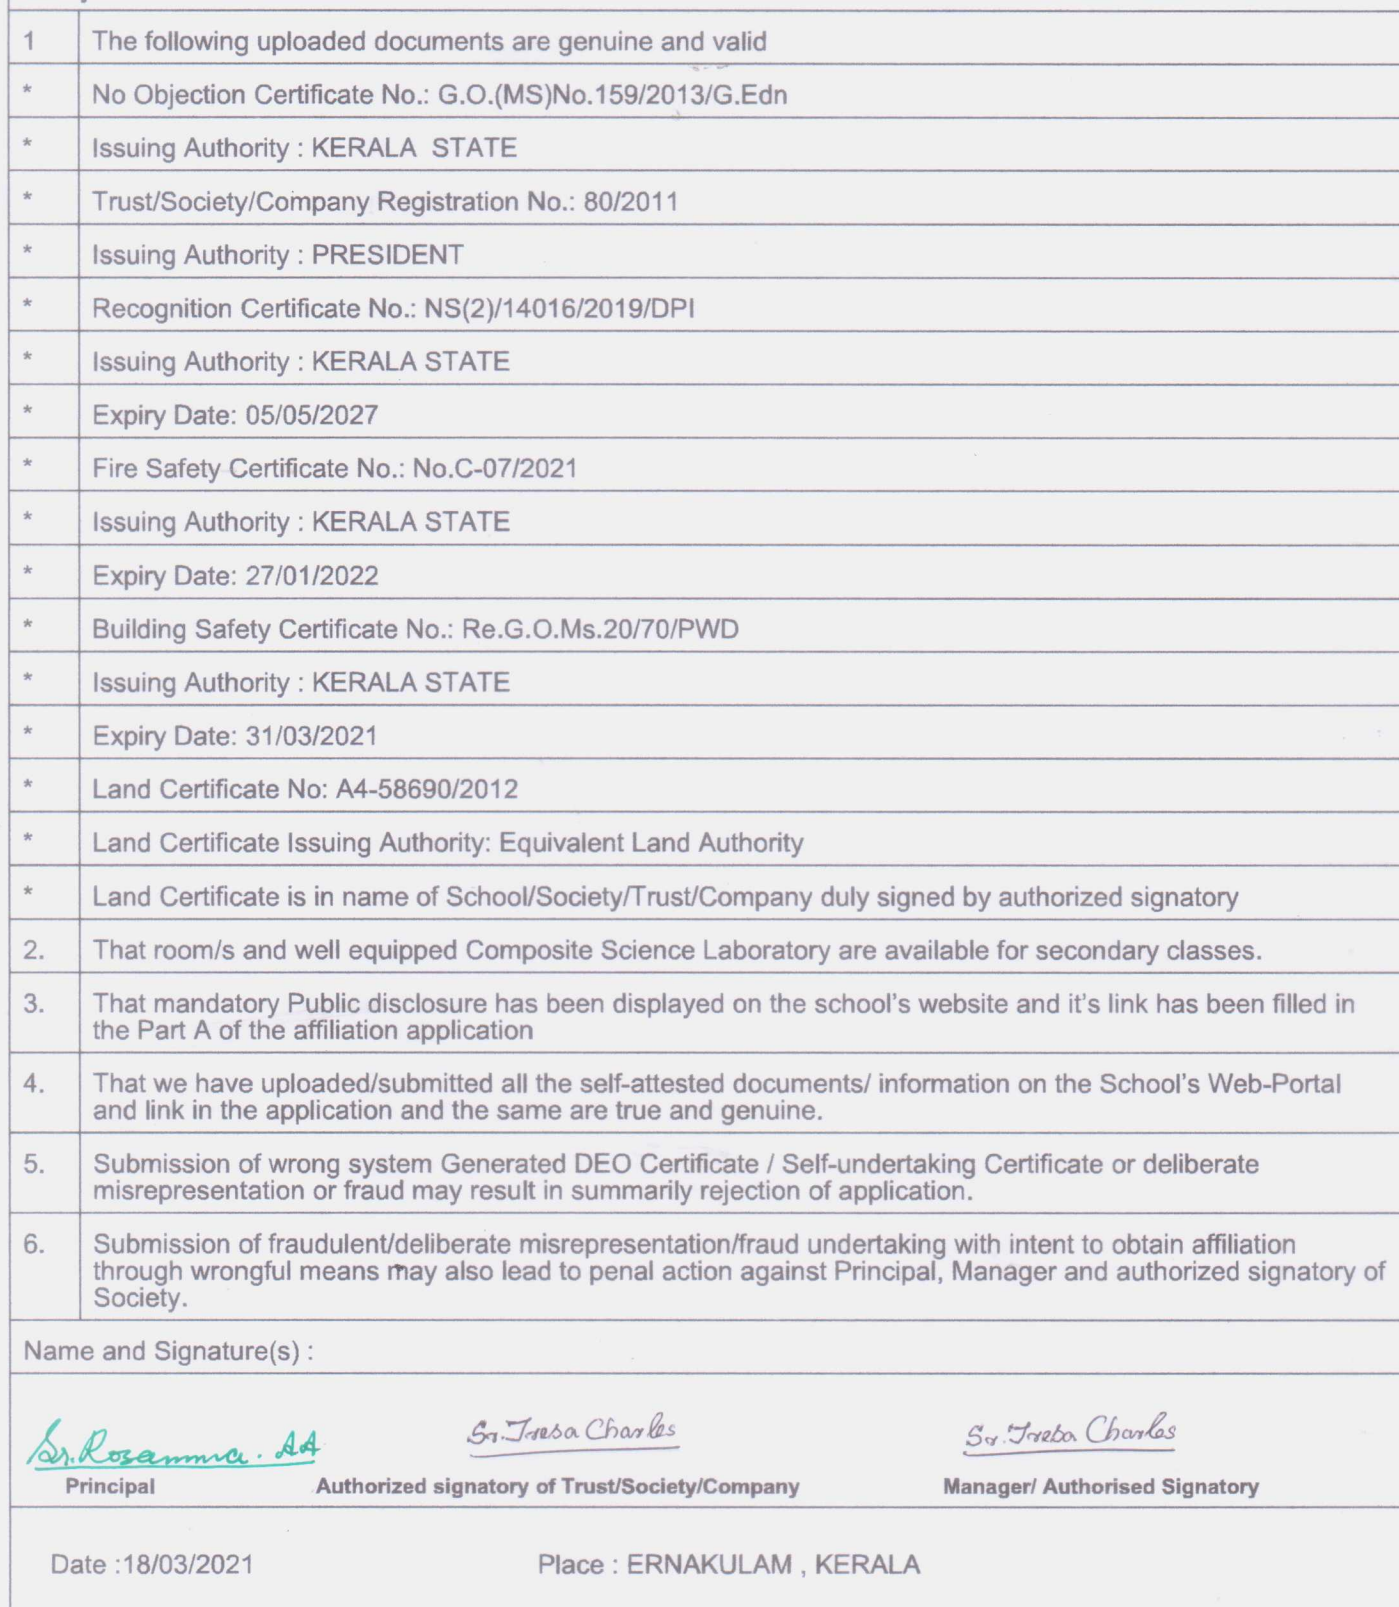 1 The following uploaded documents are genuine and valid
* No Objection Certificate No.: G.O.(MS)No.159/2013/G.Edn
* Issuing Authority : KERALA STATE
* Trust/Society/Company Registration No.: 80/2011
* Issuing Authority : PRESIDENT
* Recognition Certificate No.: NS(2)/14016/2019/DPI
* Issuing Authority : KERALA STATE
* Expiry Date: 05/05/2027
* Fire Safety Certificate No.: No.C-07/2021
* Issuing Authority : KERALA STATE
* Expiry Date: 27/01/2022
* Building Safety Certificate No.: Re.G.O.Ms.20/70/PWD
* Issuing Authority : KERALA STATE
* Expiry Date: 31/03/2021
* Land Certificate No: A4-58690/2012
* Land Certificate Issuing Authority: Equivalent Land Authority
* Land Certificate is in name of School/Society/Trust/Company duly signed by authorized signatory
2. That room/s and well equipped Composite Science Laboratory are available for secondary classes.
3. That mandatory Public disclosure has been displayed on the school's website and it's link has been filled in
the Part A of the affiliation application
4. That we have uploaded/submitted all the self-attested documents/ information on the School's Web-Portal
and link in the application and the same are true and genuine.
5. Submission of wrong system Generated DEO Certificate / Self-undertaking Certificate or deliberate
misrepresentation or fraud may result in summarily rejection of application.
6. Submission of fraudulent/deliberate misrepresentation/fraud undertaking with intent to obtain affiliation
through wrongful means may also lead to penal action against Principal, Manager and authorized signatory of
Society.
Name and Signature(s) :
Sr. Rosamma. AA Sr. Tresa Charles Sr. Tresa Charles
Principal Authorized signatory of Trust/Society/Company Manager/ Authorised Signatory
Date :18/03/2021 Place : ERNAKULAM , KERALA